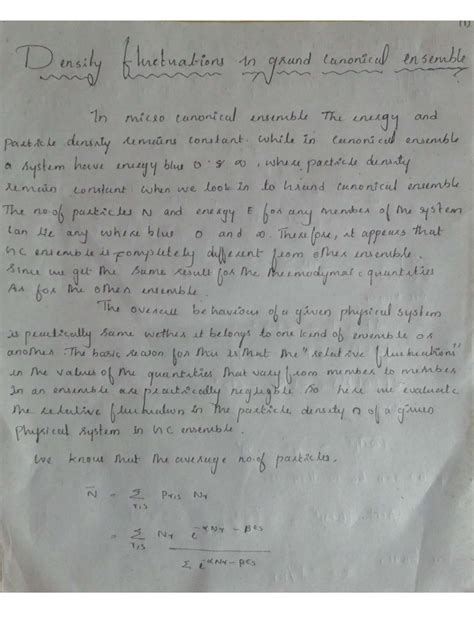 (1)
Density fluctuations in grand canonical ensemble
In micro canonical ensemble The energy and
particle density remains constant. While in canonical ensemble
a system have energy b/w 0 & ∞, where particle density
remain constant when we look in to Grand canonical ensemble
The no. of particles N and energy E for any member of the system
Can lie any where b/w 0 and ∞. Therefore, it appears that
GC ensemble is completely different from other ensemble.
Since we get the same result for the thermodymaic quantities
As for the other ensemble.
The overall behaviour of a given physical system
is practically same wether it belongs to one kind of ensemble or
another. The basic reason for this is that the "relative fluctuations"
in the values of the quantities that vary from member to member
In an ensemble are practically neglegble. So here we evaluate
the relative fluctuation in the particle density n of a given
physical system in GC ensemble.
We know that the average no. of particles.
N̄ = Σ_{r,s} P_{r,s} N_r
= Σ_{r,s} N_r e^{-αN_r - βE_s}
Σ e^{-αN_r - βE_s}